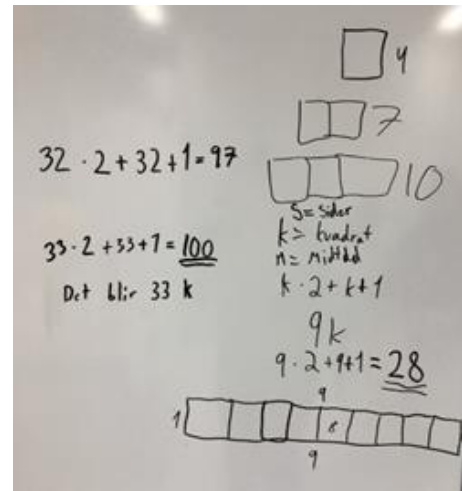 4
7
10
32 · 2 + 32 + 1 = 97
33 · 2 + 33 + 1 = 100
Det blir 33 k
S = sider
k = kvadrat
k · 2 + k + 1
9k
9 · 2 + 9 + 1 = 28
9
1
8
9